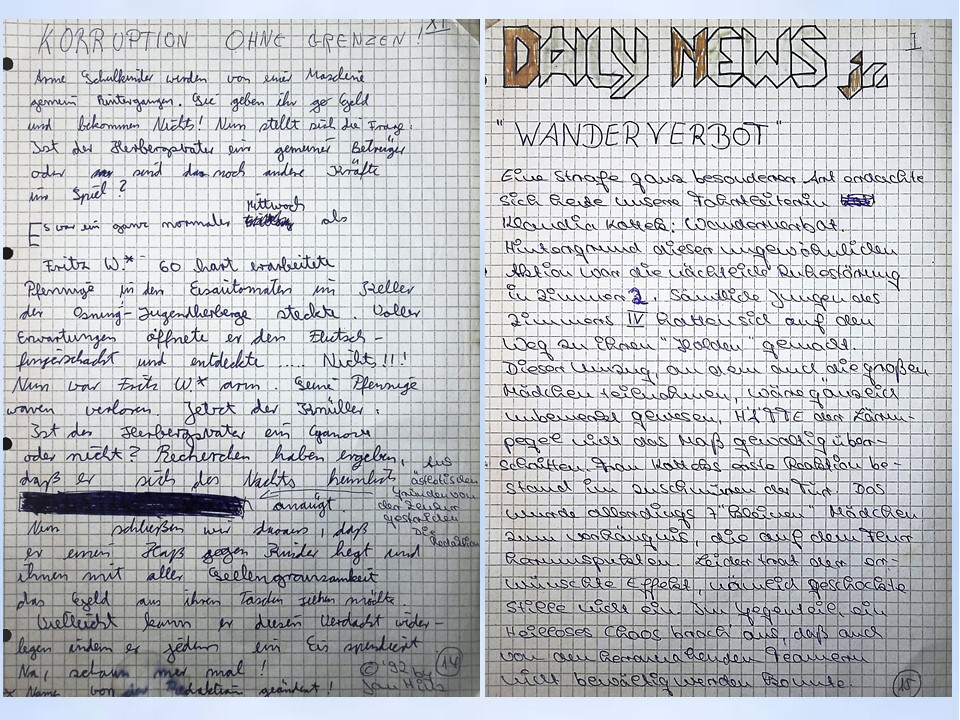 XI
KORRUPTION OHNE GRENZEN!
Arme Schulkinder werden von einer Maschine
gemein hintergangen. Sie geben ihr ge Geld
und bekommen Nichts! Nun stellt sich die Frage:
Ist der Herbergsvater ein gemeiner Betrüger
oder sind da noch andere Kräfte
im Spiel?
Mittwoch
Es war ein ganz normaler als
Fritz W.* 60 hart erarbeitete
Pfennige in den Eisautomaten im Keller
der Osning-Jugendherberge steckte. Voller
Erwartungen öffnete er den Flutsch-
fingerschacht und entdeckte ..... Nichts!!!
Nun war Fritz W* arm. Seine Pfennige
waren verloren. Jetzt der Knüller:
Ist der Herbergsvater ein Ganove
oder nicht? Recherchen haben ergeben,
daß er sich des Nachts heimlich
ansäugt.
Aus
ästhetischen
Gründen von
der Zensur
gestrichen
Die
Redaktion
Nun schließen wir daraus, daß
er einen Haß gegen Kinder hegt und
ihnen mit aller Seelengrausamkeit
das Geld aus ihren Taschen ziehen möchte.
Vielleicht kann er diesen Verdacht wider-
legen indem er jedem ein Eis spendiert
Na, schaun mer mal!
* Name von der Redaktion geändert!
© '92 by
Jan
14
DAILY NEWS jr.
I
"WANDERVERBOT"
Eine Strafe ganz besonderer Art erdachte
sich heute unsere Fahrtleiterin
Klaudia Kattek: Wanderverbot.
Hintergrund dieser ungewöhnlichen
Aktion war die nächtliche Ruhestörung
in Zimmer 2. Sämtliche Jungen des
Zimmers IV hatten sich auf den
Weg zu ihren "Holden" gemacht.
Dieser Umzug, an dem auch die "großen
Mädchen teilnahmen, wäre gänzlich
unbemerkt gewesen, HÄTTE der Lärm-
pegel nicht das Maß gewaltig über-
schritten. Frau Katteks erste Reaktion be-
stand im zuschmeißen der Tür. Das
wurde allerdings 7 "kleinen" Mädchen
zum verhängnis, die auf dem Flur
herumspukten. Leider trat der er-
wünschte Effekt, nämlich geschockte
Stille nicht ein. Im Gegenteil, ein
Heilloses Chaos brach aus, daß auch
von den herannahenden Teamern
nicht bewältigt werden konnte.
15